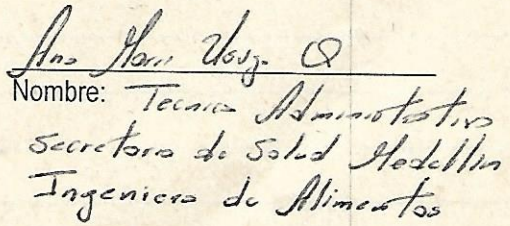 Ana María Usuga Q
Nombre: Tecnica Administrativa
Secretaria de Salud Medellín
Ingeniera de Alimentos